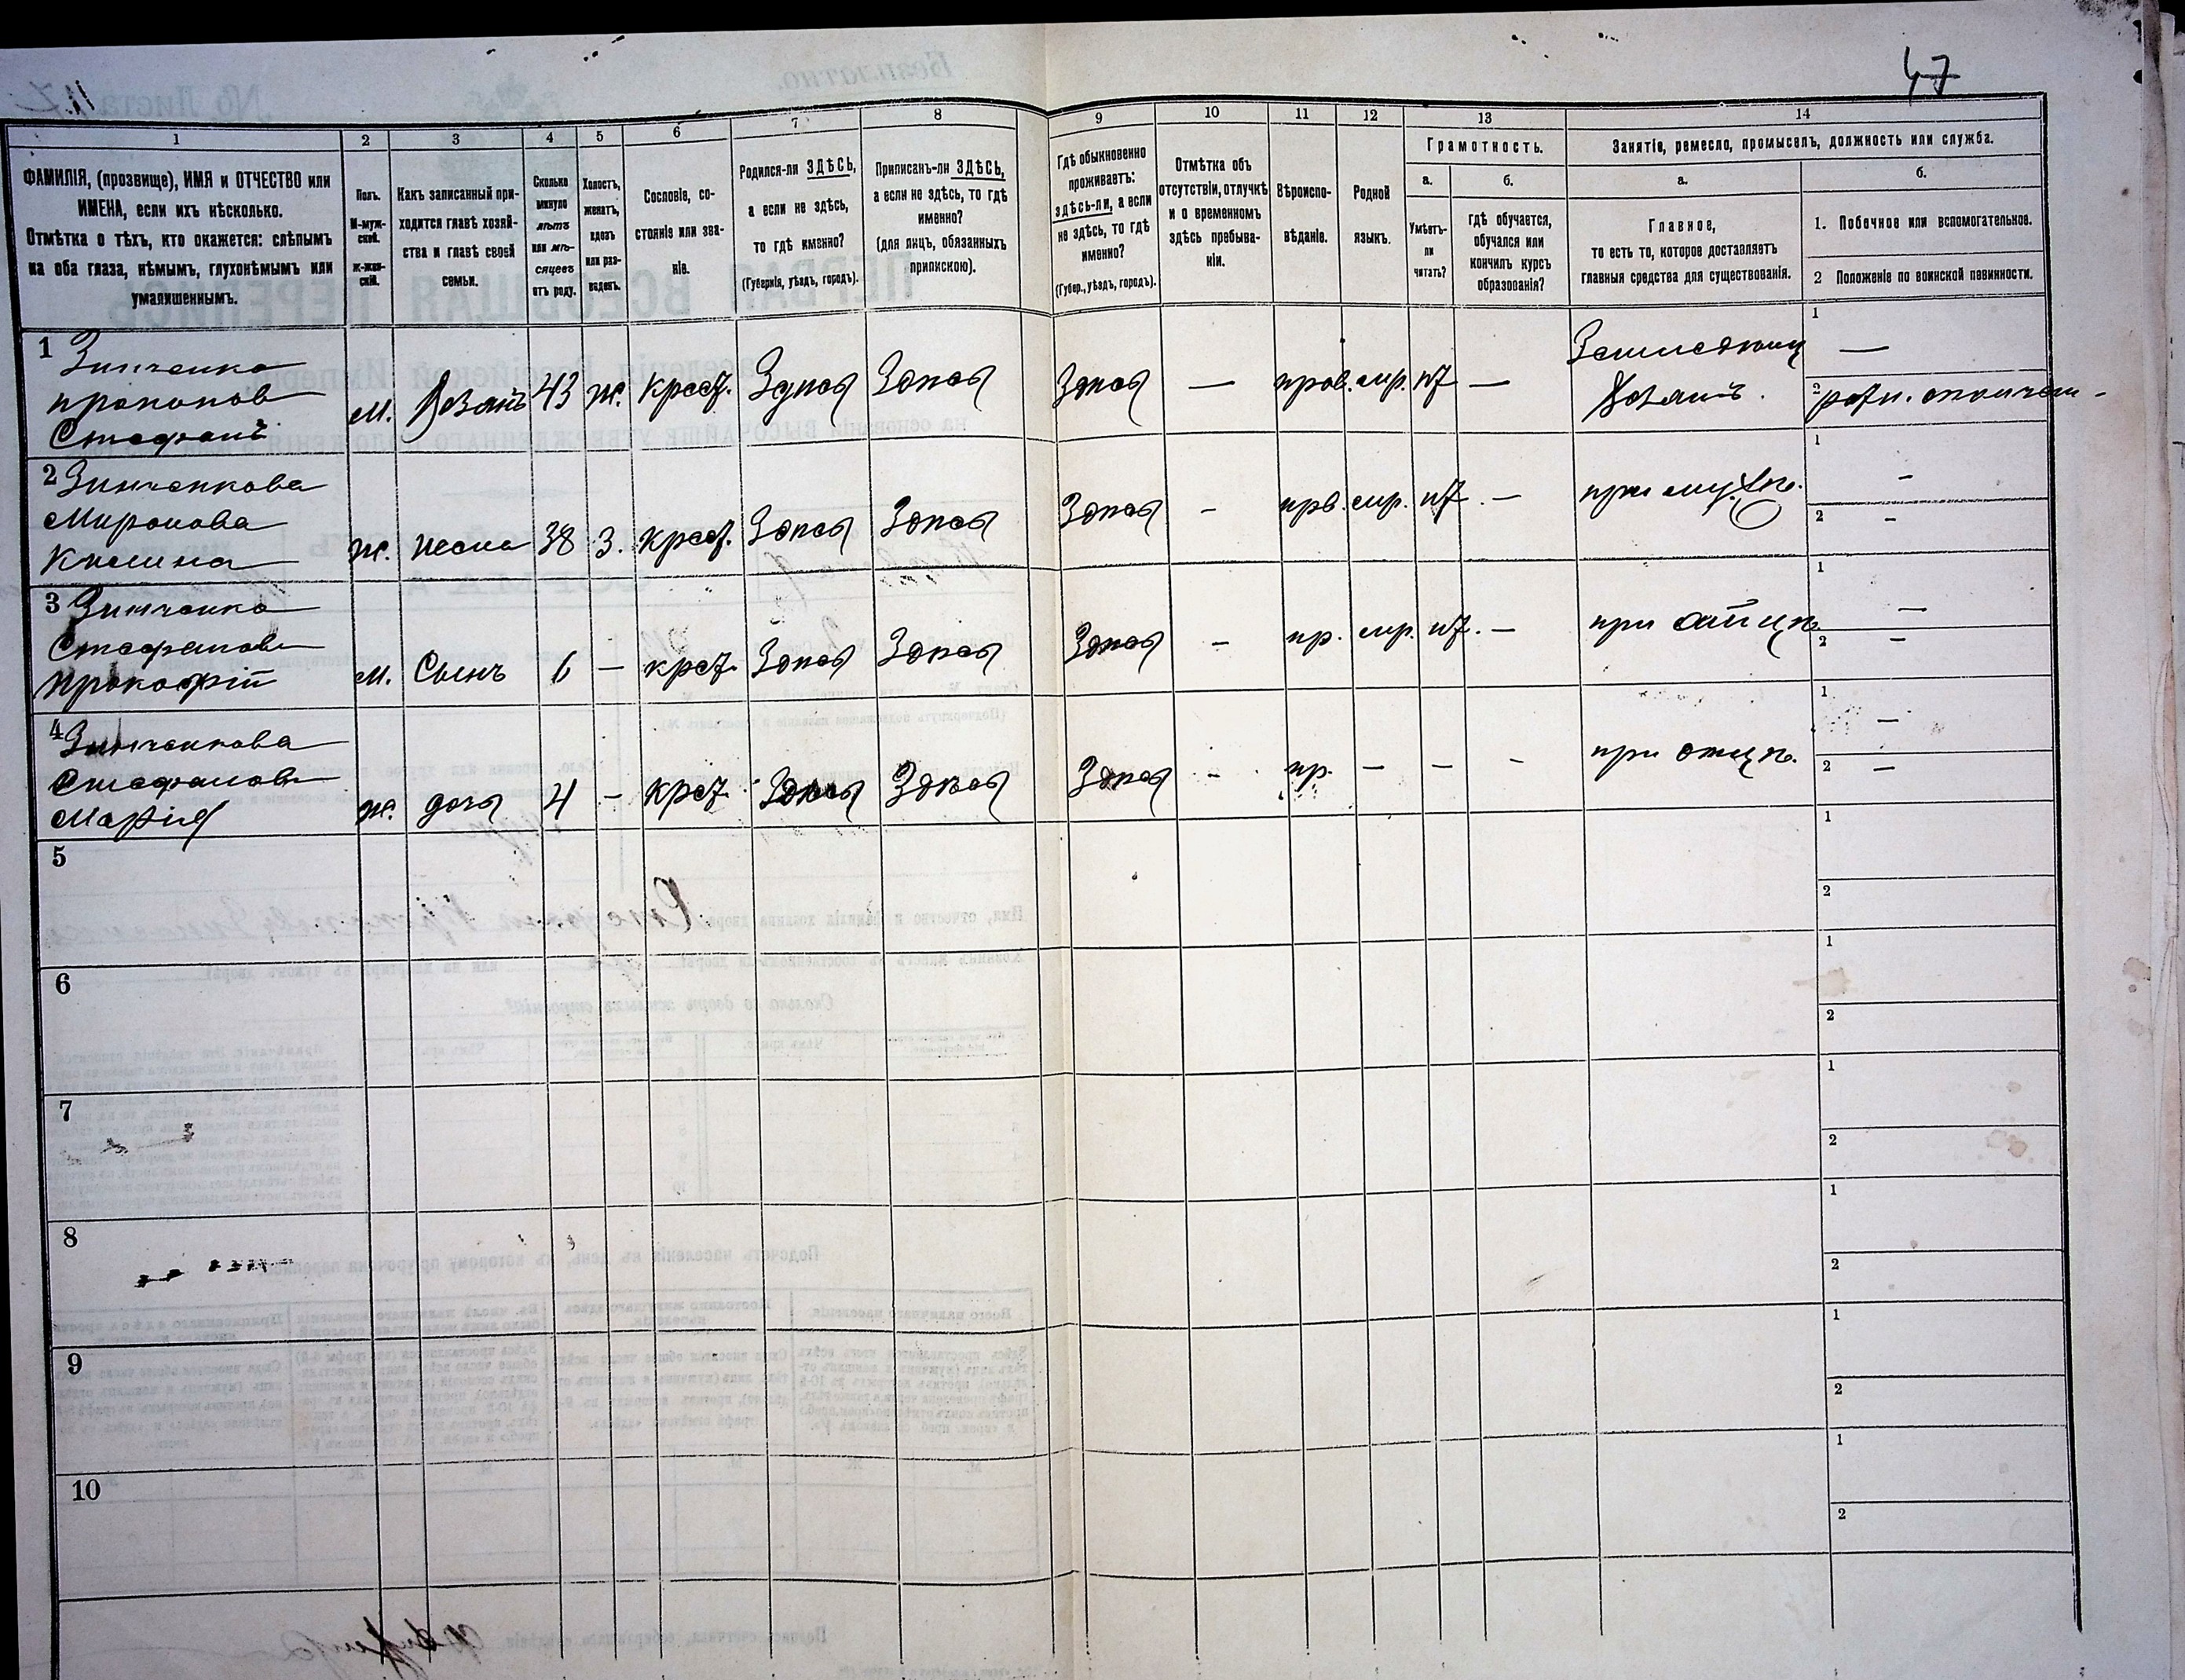 47
1 2 3 4 5 6 7 8 9 10 11 12 13 14
ФАМИЛІЯ, (прозвище), ИМЯ и ОТЧЕСТВО или
ИМЕНА, если ихъ нѣсколько.
Отмѣтка о тѣхъ, кто окажется: слѣпымъ
на оба глаза, нѣмымъ, глухонѣмымъ или
умалишеннымъ.
Полъ.
М-муж-
ской.
Ж-жен-
скій.
Какъ записанный при-
ходится главѣ хозяй-
ства и главѣ своей
семьи.
Сколько
минуло
лѣтъ
или мѣ-
сяцевъ
отъ роду.
Холостъ,
женатъ,
вдовъ
или раз-
веденъ.
Сословіе, со-
стояніе или зва-
ніе.
Родился-ли ЗДѢСЬ,
а если не здѣсь,
то гдѣ именно?
(Губернія, уѣздъ, городъ).
Приписанъ-ли ЗДѢСЬ,
а если не здѣсь, то гдѣ
именно?
(для лицъ, обязанныхъ
припискою).
Гдѣ обыкновенно
проживаетъ:
здѣсь-ли, а если
не здѣсь, то гдѣ
именно?
(Губер., уѣздъ, городъ).
Отмѣтка объ
отсутствіи, отлучкѣ
и о временномъ
здѣсь пребыва-
ніи.
Вѣроиспо-
вѣданіе.
Родной
языкъ.
Грамотность.
а.
Умѣетъ-
ли
читать?
б.
гдѣ обучается,
обучался или
кончилъ курсъ
образованія?
Занятіе, ремесло, промыселъ, должность или служба.
а.
Главное,
то есть то, которое доставляетъ
главныя средства для существованія.
б.
1. Побочное или вспомогательное.
2 Положеніе по воинской повинности.
1 Зинченко
Прокопов
Стефанъ
м. Хозяинъ 43 ж. Крест. Здѣсь Здѣсь Здѣсь — прав. мр. нт —
Хозяинъ.
1 —
2
2 Зинченкова
Миронова
Килина
ж. жена 38 з. крест. Здѣсь Здѣсь Здѣсь - прв. мр. нт. — при мужѣ.
1 -
2 -
3 Зинченко
Стефанов
Прокофій
м. Сынъ 6 — крест. Здѣсь Здѣсь Здѣсь - пр. мр. нт. — при отцѣ
1 —
2 -
4 Зинченкова
Стефанов
Марія
ж. дочь 4 - крест Здѣсь Здѣсь Здѣсь - пр. — - - при отцѣ.
1 —
2 —
5 1
2
6 1
2
7 1
2
8 1
2
9 1
2
10 1
2